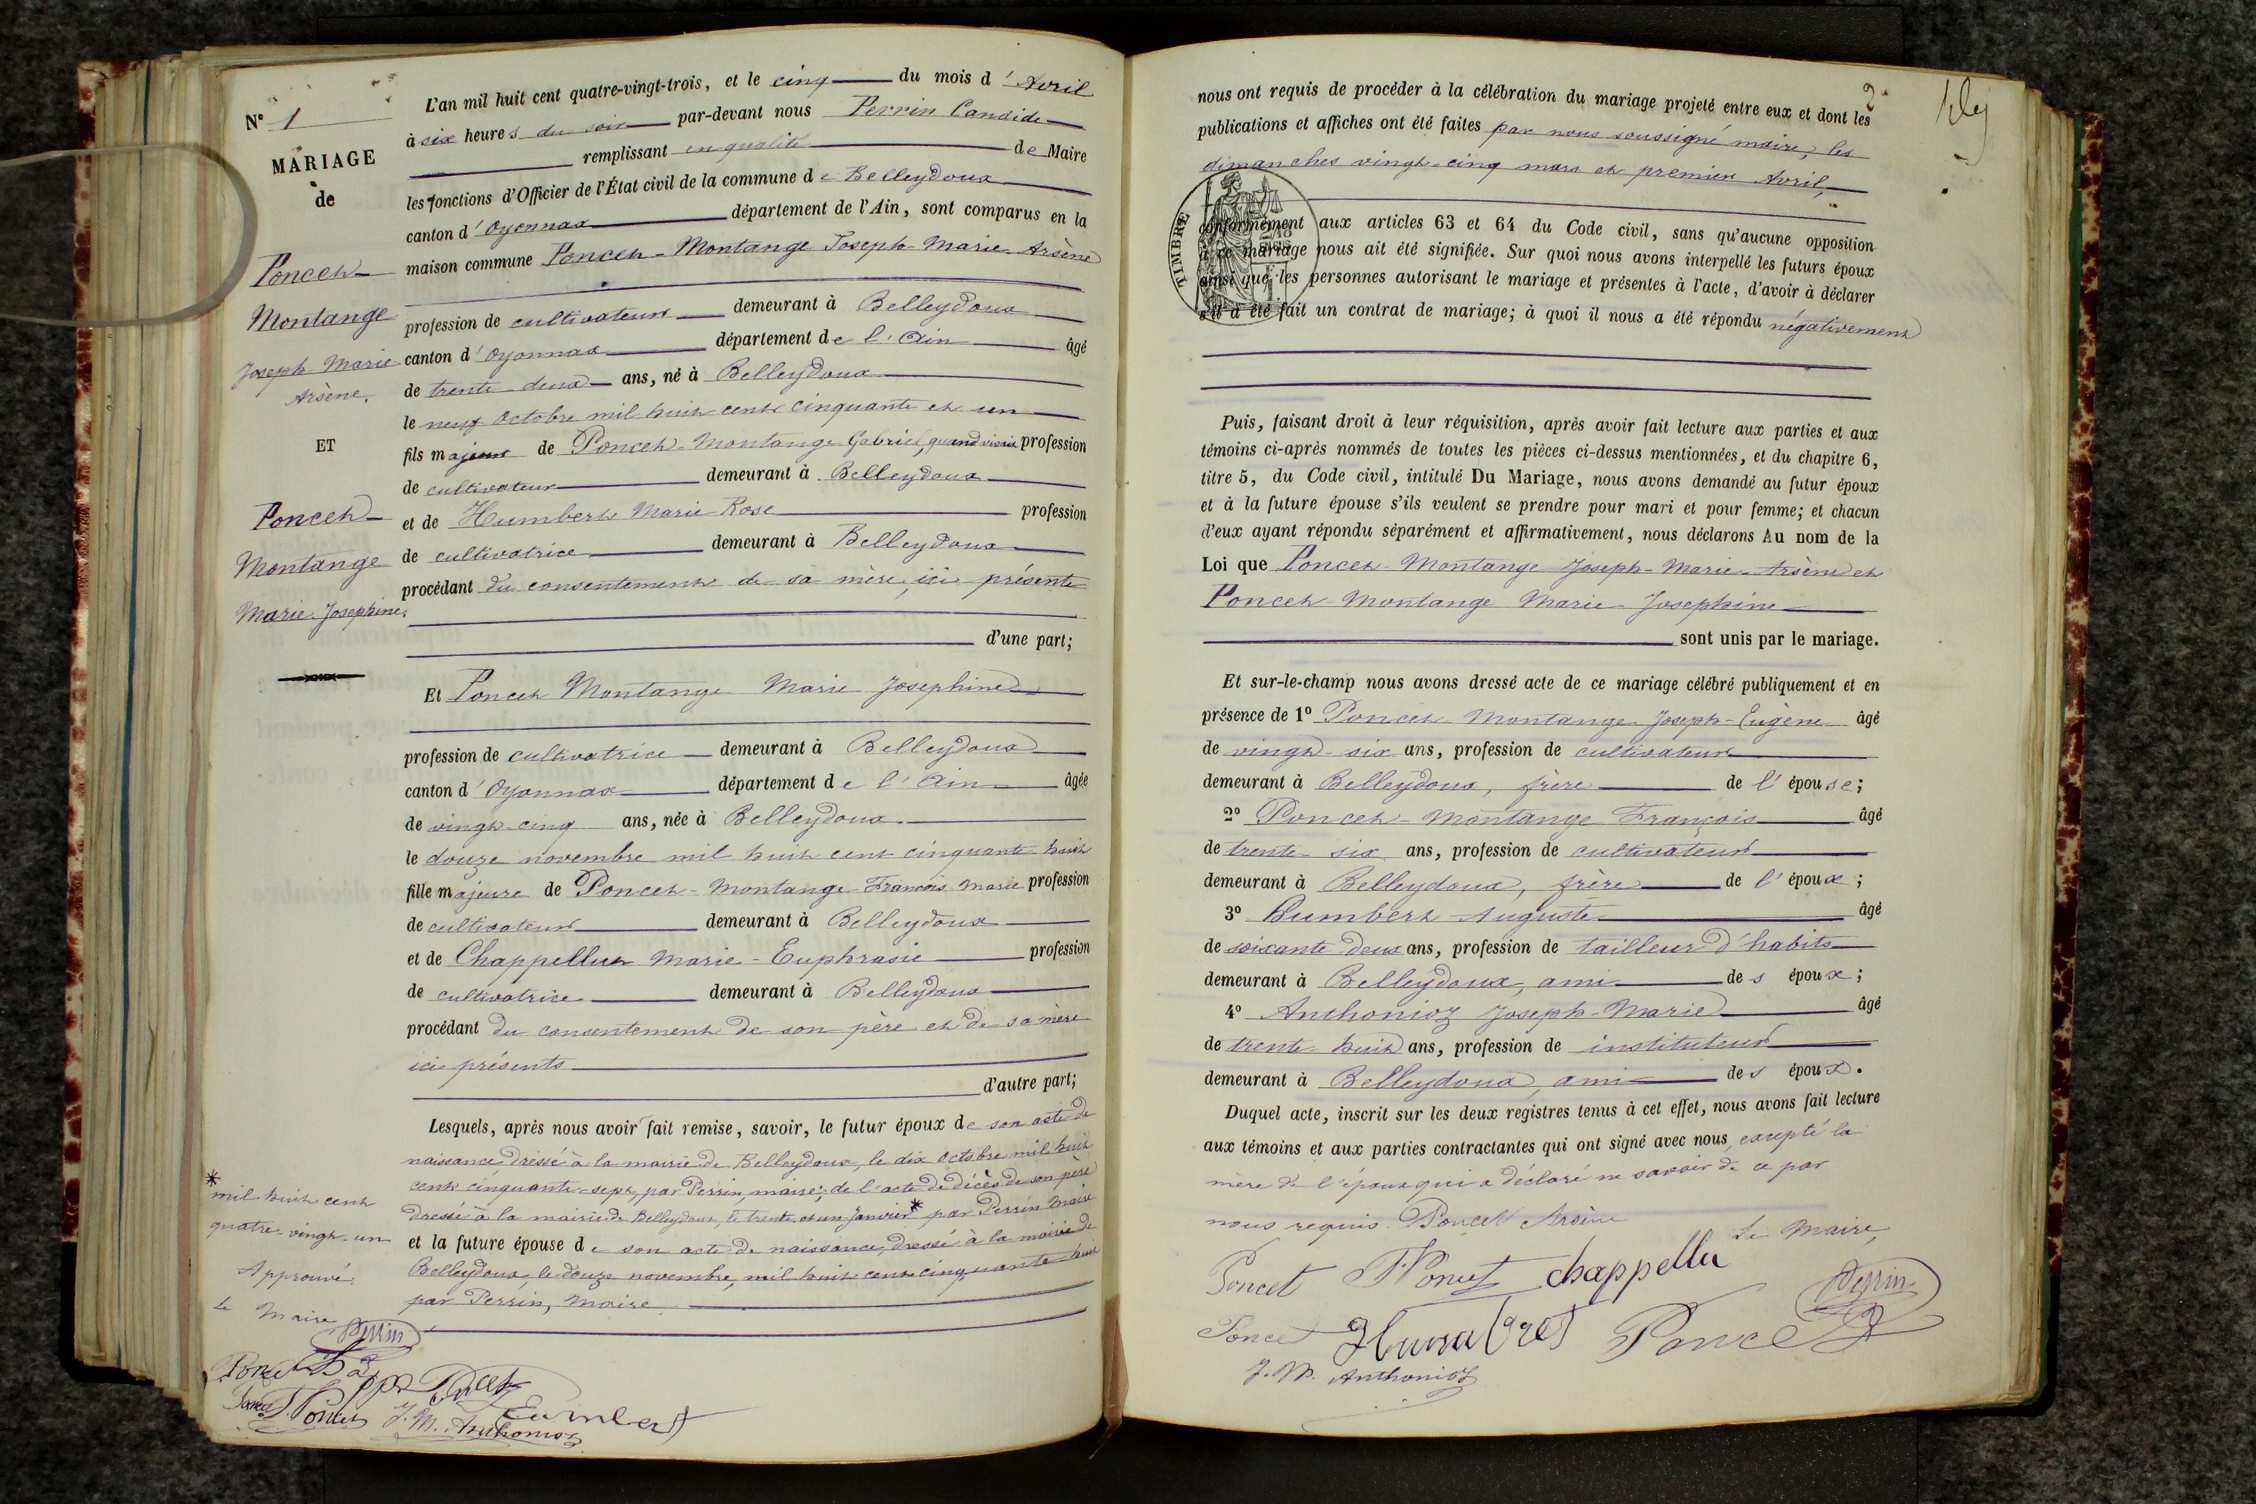 N° 1
MARIAGE
de
Poncet-
Montange
Joseph Marie
Arsène.
ET
Poncet-
Montange
Marie Josephine.
L'an mil huit cent quatre-vingt-trois, et le cinq du mois d'Avril
à six heures du soir par-devant nous Perrin Candide
remplissant en qualité de Maire
les fonctions d'Officier de l'État civil de la commune de Belleydoux
canton d'Oyonnax département de l'Ain, sont comparus en la
maison commune Poncet-Montange Joseph-Marie-Arsène
profession de cultivateur demeurant à Belleydoux
canton d'Oyonnax département de l'Ain âgé
de trente deux ans, né à Belleydoux
le neuf Octobre mil huit cent cinquante et un
fils majeur de Poncet-Montange Gabriel, quand vivait profession
de cultivateur demeurant à Belleydoux
et de Humbert Marie Rose profession
de cultivatrice demeurant à Belleydoux
procédant du consentement de sa mère, ici présente
d'une part;
Et Poncet Montange Marie Josephine
profession de cultivatrice demeurant à Belleydoux
canton d'Oyonnax département de l'Ain âgée
de vingt-cinq ans, née à Belleydoux
le douze novembre mil huit cent cinquante huit
fille majeure de Poncet-Montange François Marie profession
de cultivateur demeurant à Belleydoux
et de Chappelluz Marie-Euphrasie profession
de cultivatrice demeurant à Belleydoux
procédant du consentement de son père et de sa mère
ici présents
d'autre part;
Lesquels, après nous avoir fait remise, savoir, le futur époux de son acte de
naissance dressé à la mairie de Belleydoux, le dix Octobre mil huit
cent cinquante-sept, par Perrin, maire; de l'acte de décès de son père
dressé à la mairie de Belleydoux, le trente et un Janvier * par Perrin Maire
et la future épouse de son acte de naissance, dressé à la mairie de
Belleydoux, le douze novembre, mil huit cent cinquante huit
par Perrin, Maire
* mil huit cent
quatre-vingt-un
Approuvé
le Maire
Perrin
Poncet
F. Poncet
J. M. Anthonioz
Humbert
nous ont requis de procéder à la célébration du mariage projeté entre eux et dont les
publications et affiches ont été faites par nous soussigné maire, les
dimanches vingt-cinq mars et premier Avril,
TIMBRE
conformément aux articles 63 et 64 du Code civil, sans qu'aucune opposition
à ce mariage nous ait été signifiée. Sur quoi nous avons interpellé les futurs époux
ainsi que les personnes autorisant le mariage et présentes à l'acte, d'avoir à déclarer
s'il a été fait un contrat de mariage; à quoi il nous a été répondu négativement
Puis, faisant droit à leur réquisition, après avoir fait lecture aux parties et aux
témoins ci-après nommés de toutes les pièces ci-dessus mentionnées, et du chapitre 6,
titre 5, du Code civil, intitulé Du Mariage, nous avons demandé au futur époux
et à la future épouse s'ils veulent se prendre pour mari et pour femme; et chacun
d'eux ayant répondu séparément et affirmativement, nous déclarons Au nom de la
Loi que Poncet-Montange Joseph-Marie-Arsène et
Poncet Montange Marie Josephine
sont unis par le mariage.
Et sur-le-champ nous avons dressé acte de ce mariage célébré publiquement et en
présence de 1° Poncet Montange Joseph-Eugène âgé
de vingt-six ans, profession de cultivateur
demeurant à Belleydoux, frère de l'épouse;
2° Poncet-Montange François âgé
de trente six ans, profession de cultivateur
demeurant à Belleydoux, frère de l'époux;
3° Humbert Auguste âgé
de soixante deux ans, profession de tailleur d'habits
demeurant à Belleydoux, ami des époux;
4° Anthonioz Joseph-Marie âgé
de trente-huit ans, profession de instituteur
demeurant à Belleydoux, ami des époux.
Duquel acte, inscrit sur les deux registres tenus à cet effet, nous avons fait lecture
aux témoins et aux parties contractantes qui ont signé avec nous, excepté la
mère de l'époux qui a déclaré ne savoir de ce par
nous requis. Poncet Arsène
Le Maire,
Poncet F. Poncet chappellu Perrin
Poncet Humbert Poncet
J. M. Anthonioz